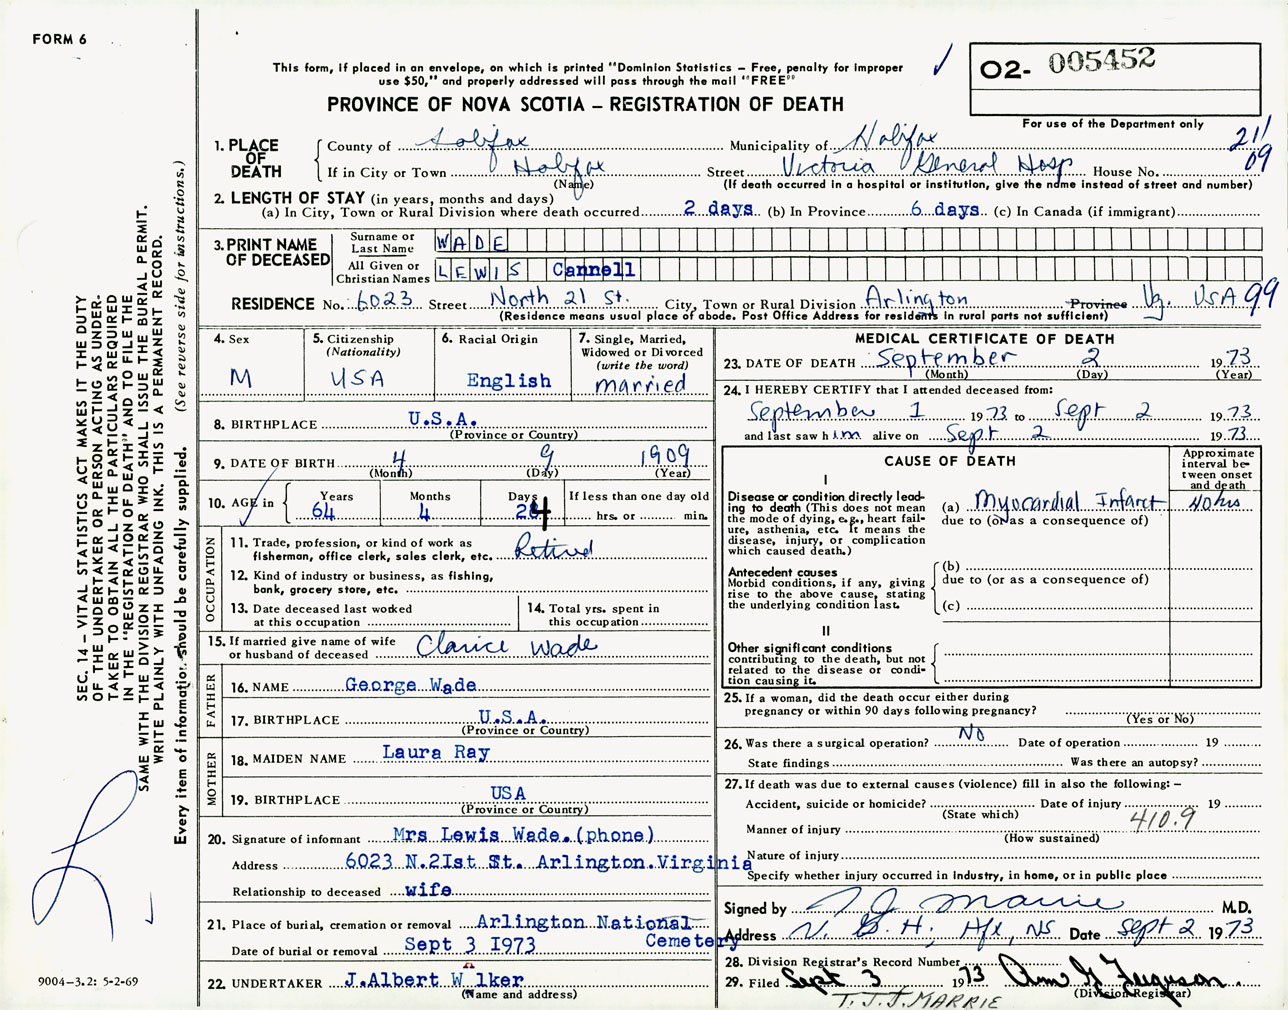 FORM 6
This form, if placed in an envelope, on which is printed "Dominion Statistics – Free, penalty for improper
use $50," and properly addressed will pass through the mail "FREE"
PROVINCE OF NOVA SCOTIA – REGISTRATION OF DEATH
O2- 005452
For use of the Department only
21/
09
1. PLACE OF DEATH
County of Halifax Municipality of Halifax
If in City or Town Halifax Street Victoria General Hosp House No.
(Name) (If death occurred in a hospital or institution, give the name instead of street and number)
2. LENGTH OF STAY (in years, months and days)
(a) In City, Town or Rural Division where death occurred 2 days (b) In Province 6 days (c) In Canada (if immigrant)
3. PRINT NAME OF DECEASED
Surname or Last Name WADE
All Given or Christian Names LEWIS Cannell
RESIDENCE No. 6023 Street North 21 St. City, Town or Rural Division Arlington Province Va. USA 99
(Residence means usual place of abode. Post Office Address for residents in rural parts not sufficient)
4. Sex
M
5. Citizenship
(Nationality)
USA
6. Racial Origin
English
7. Single, Married,
Widowed or Divorced
(write the word)
married
8. BIRTHPLACE U.S.A.
(Province or Country)
9. DATE OF BIRTH 4 9 1909
(Month) (Day) (Year)
10. AGE in
Years Months Days If less than one day old
64 4 24 hrs. or min.
OCCUPATION
11. Trade, profession, or kind of work as
fisherman, office clerk, sales clerk, etc. Retired
12. Kind of industry or business, as fishing,
bank, grocery store, etc.
13. Date deceased last worked
at this occupation
14. Total yrs. spent in
this occupation
15. If married give name of wife
or husband of deceased Clarice Wade
FATHER
16. NAME George Wade
17. BIRTHPLACE U.S.A.
(Province or Country)
MOTHER
18. MAIDEN NAME Laura Ray
19. BIRTHPLACE USA
(Province or Country)
20. Signature of informant Mrs Lewis Wade.(phone)
Address 6023 N.2Ist St. Arlington.Virginia
Relationship to deceased wife
21. Place of burial, cremation or removal Arlington National
Cemetery
Date of burial or removal Sept 3 I973
22. UNDERTAKER J.Albert Walker
(Name and address)
MEDICAL CERTIFICATE OF DEATH
23. DATE OF DEATH September 2 1973
(Month) (Day) (Year)
24. I HEREBY CERTIFY that I attended deceased from:
September 1 1973 to Sept 2 1973
and last saw him alive on Sept 2 1973
CAUSE OF DEATH
Approximate
interval be-
tween onset
and death
I
Disease or condition directly lead-
ing to death (This does not
mean the mode of dying, e.g., heart fail-
ure, asthenia, etc. It means the
disease, injury, or complication
which caused death.)
(a) Myocardial Infarct 40 hrs
due to (or as a consequence of)
Antecedent causes
Morbid conditions, if any, giving
rise to the above cause, stating
the underlying condition last.
(b)
due to (or as a consequence of)
(c)
II
Other significant conditions
contributing to the death, but not
related to the disease or condi-
tion causing it.
25. If a woman, did the death occur either during
pregnancy or within 90 days following pregnancy?
(Yes or No)
26. Was there a surgical operation? No Date of operation 19
State findings Was there an autopsy?
27. If death was due to external causes (violence) fill in also the following: –
Accident, suicide or homicide? Date of injury 19
(State which)
410.9
Manner of injury
(How sustained)
Nature of injury
Specify whether injury occurred in industry, in home, or in public place
Signed by T J Marrie M.D.
Address V. G. H., Hfx, NS Date Sept 2 1973
28. Division Registrar's Record Number
29. Filed Sept 3 1973 Ann G Ferguson
(Division Registrar)
T. J. J. MARRIE
SEC. 14 – VITAL STATISTICS ACT MAKES IT THE DUTY
OF THE UNDERTAKER OR PERSON ACTING AS UNDER-
TAKER TO OBTAIN ALL THE PARTICULARS REQUIRED
IN THE "REGISTRATION OF DEATH" AND TO FILE THE
SAME WITH THE DIVISION REGISTRAR WHO SHALL ISSUE THE BURIAL PERMIT.
WRITE PLAINLY WITH UNFADING INK. THIS IS A PERMANENT RECORD.
Every item of information should be carefully supplied. (See reverse side for instructions.)
9004–3.2: 5-2-69